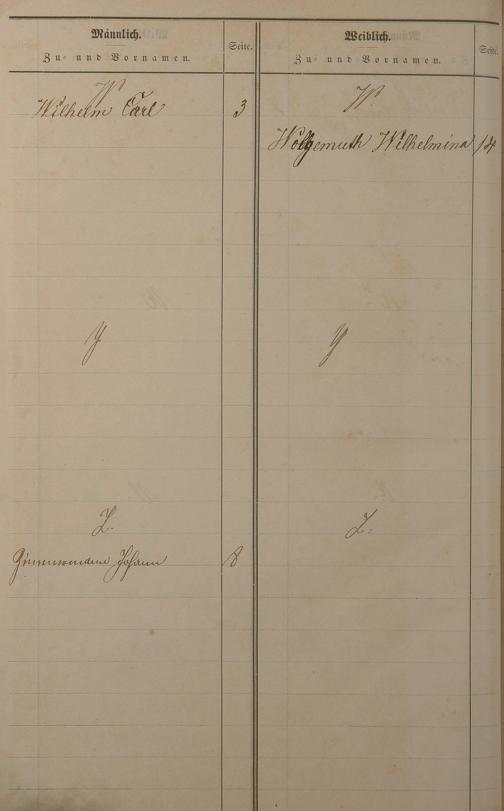 Männlich.
Zu- und Vornamen.
Seite.
W
Wilhelm Carl 3
Y
Z.
Zimmermann Johann 8
Weiblich.
Zu- und Vornamen.
Seite.
W
Wolgemuth Wilhelmina 14
Y
Z.